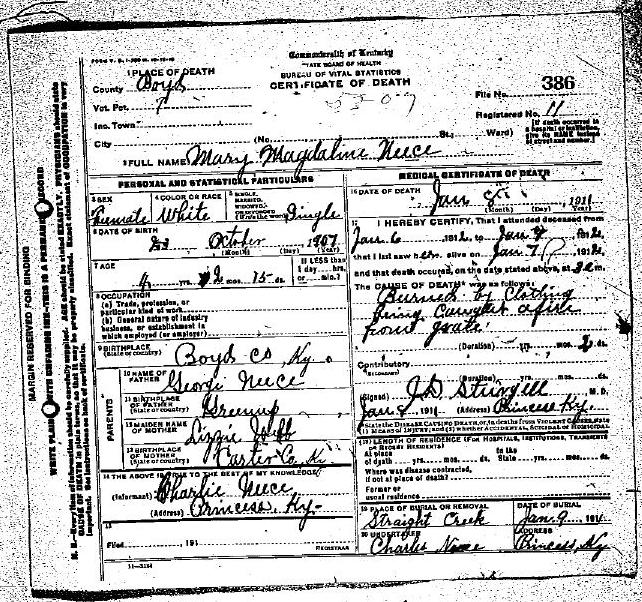 Commonwealth of Kentucky
STATE BOARD OF HEALTH
BUREAU OF VITAL STATISTICS
CERTIFICATE OF DEATH
1 PLACE OF DEATH
County Boyd
Vot. Pct. 7
Inc. Town
City
(No. St.; Ward)
File No. 386
Registered No. 11
[If death occurred in a hospital or institution, give its NAME instead of street and number.]
2 FULL NAME Mary Magdaline Neece
PERSONAL AND STATISTICAL PARTICULARS
3 SEX
Female
4 COLOR OR RACE
White
5 SINGLE, MARRIED, WIDOWED,
Single
6 DATE OF BIRTH
October 1907
(Month) (Day) (Year)
7 AGE
4 yrs. 2 mos. 15 ds.
If LESS than 1 day ... hrs. or ... min.?
8 OCCUPATION
(a) Trade, profession, or particular kind of work
(b) General nature of industry business, or establishment in which employed (or employer)
9 BIRTHPLACE
(State or country) Boyd Co, Ky.
PARENTS
10 NAME OF FATHER
George Neece
11 BIRTHPLACE OF FATHER
(State or country) Greenup
12 MAIDEN NAME OF MOTHER
Lizzie
13 BIRTHPLACE OF MOTHER
(State or country) Carter Co. Ky
14 THE ABOVE IS TRUE TO THE BEST OF MY KNOWLEDGE
(Informant) Charlie Neece
(Address) Princess, Ky-
15
Filed 191
REGISTRAR
MEDICAL CERTIFICATE OF DEATH
16 DATE OF DEATH
Jan 8 1911
(Month) (Day) (Year)
17 I HEREBY CERTIFY, That I attended deceased from
Jan 6 1912, to Jan 7 1912
that I last saw her alive on Jan 7 1912
and that death occurred, on the date stated above, at m.
The CAUSE OF DEATH was as follows:
Burned by Clothing
being Caught afire
from grate.
(Duration) yrs. mos. 2 ds.
Contributory
(Duration) yrs. mos. ds.
(Signed) J.D. Sturgell M.D.
Jan 8 1911 (Address) Princess Ky.
18 LENGTH OF RESIDENCE (FOR HOSPITALS, INSTITUTIONS, TRANSIENTS OR RECENT RESIDENTS)
At place of death yrs. mos. ds. In the State yrs. mos. ds.
Where was disease contracted, if not at place of death?
Former or usual residence
19 PLACE OF BURIAL OR REMOVAL
Straight Creek
DATE OF BURIAL
Jan. 9 191
20 UNDERTAKER
Charles Neece
ADDRESS
Princess, Ky
MARGIN RESERVED FOR BINDING
WRITE PLAINLY WITH UNFADING INK—THIS IS A PERMANENT RECORD